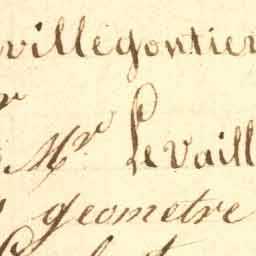 villegontier
Mr Levaill
geometre